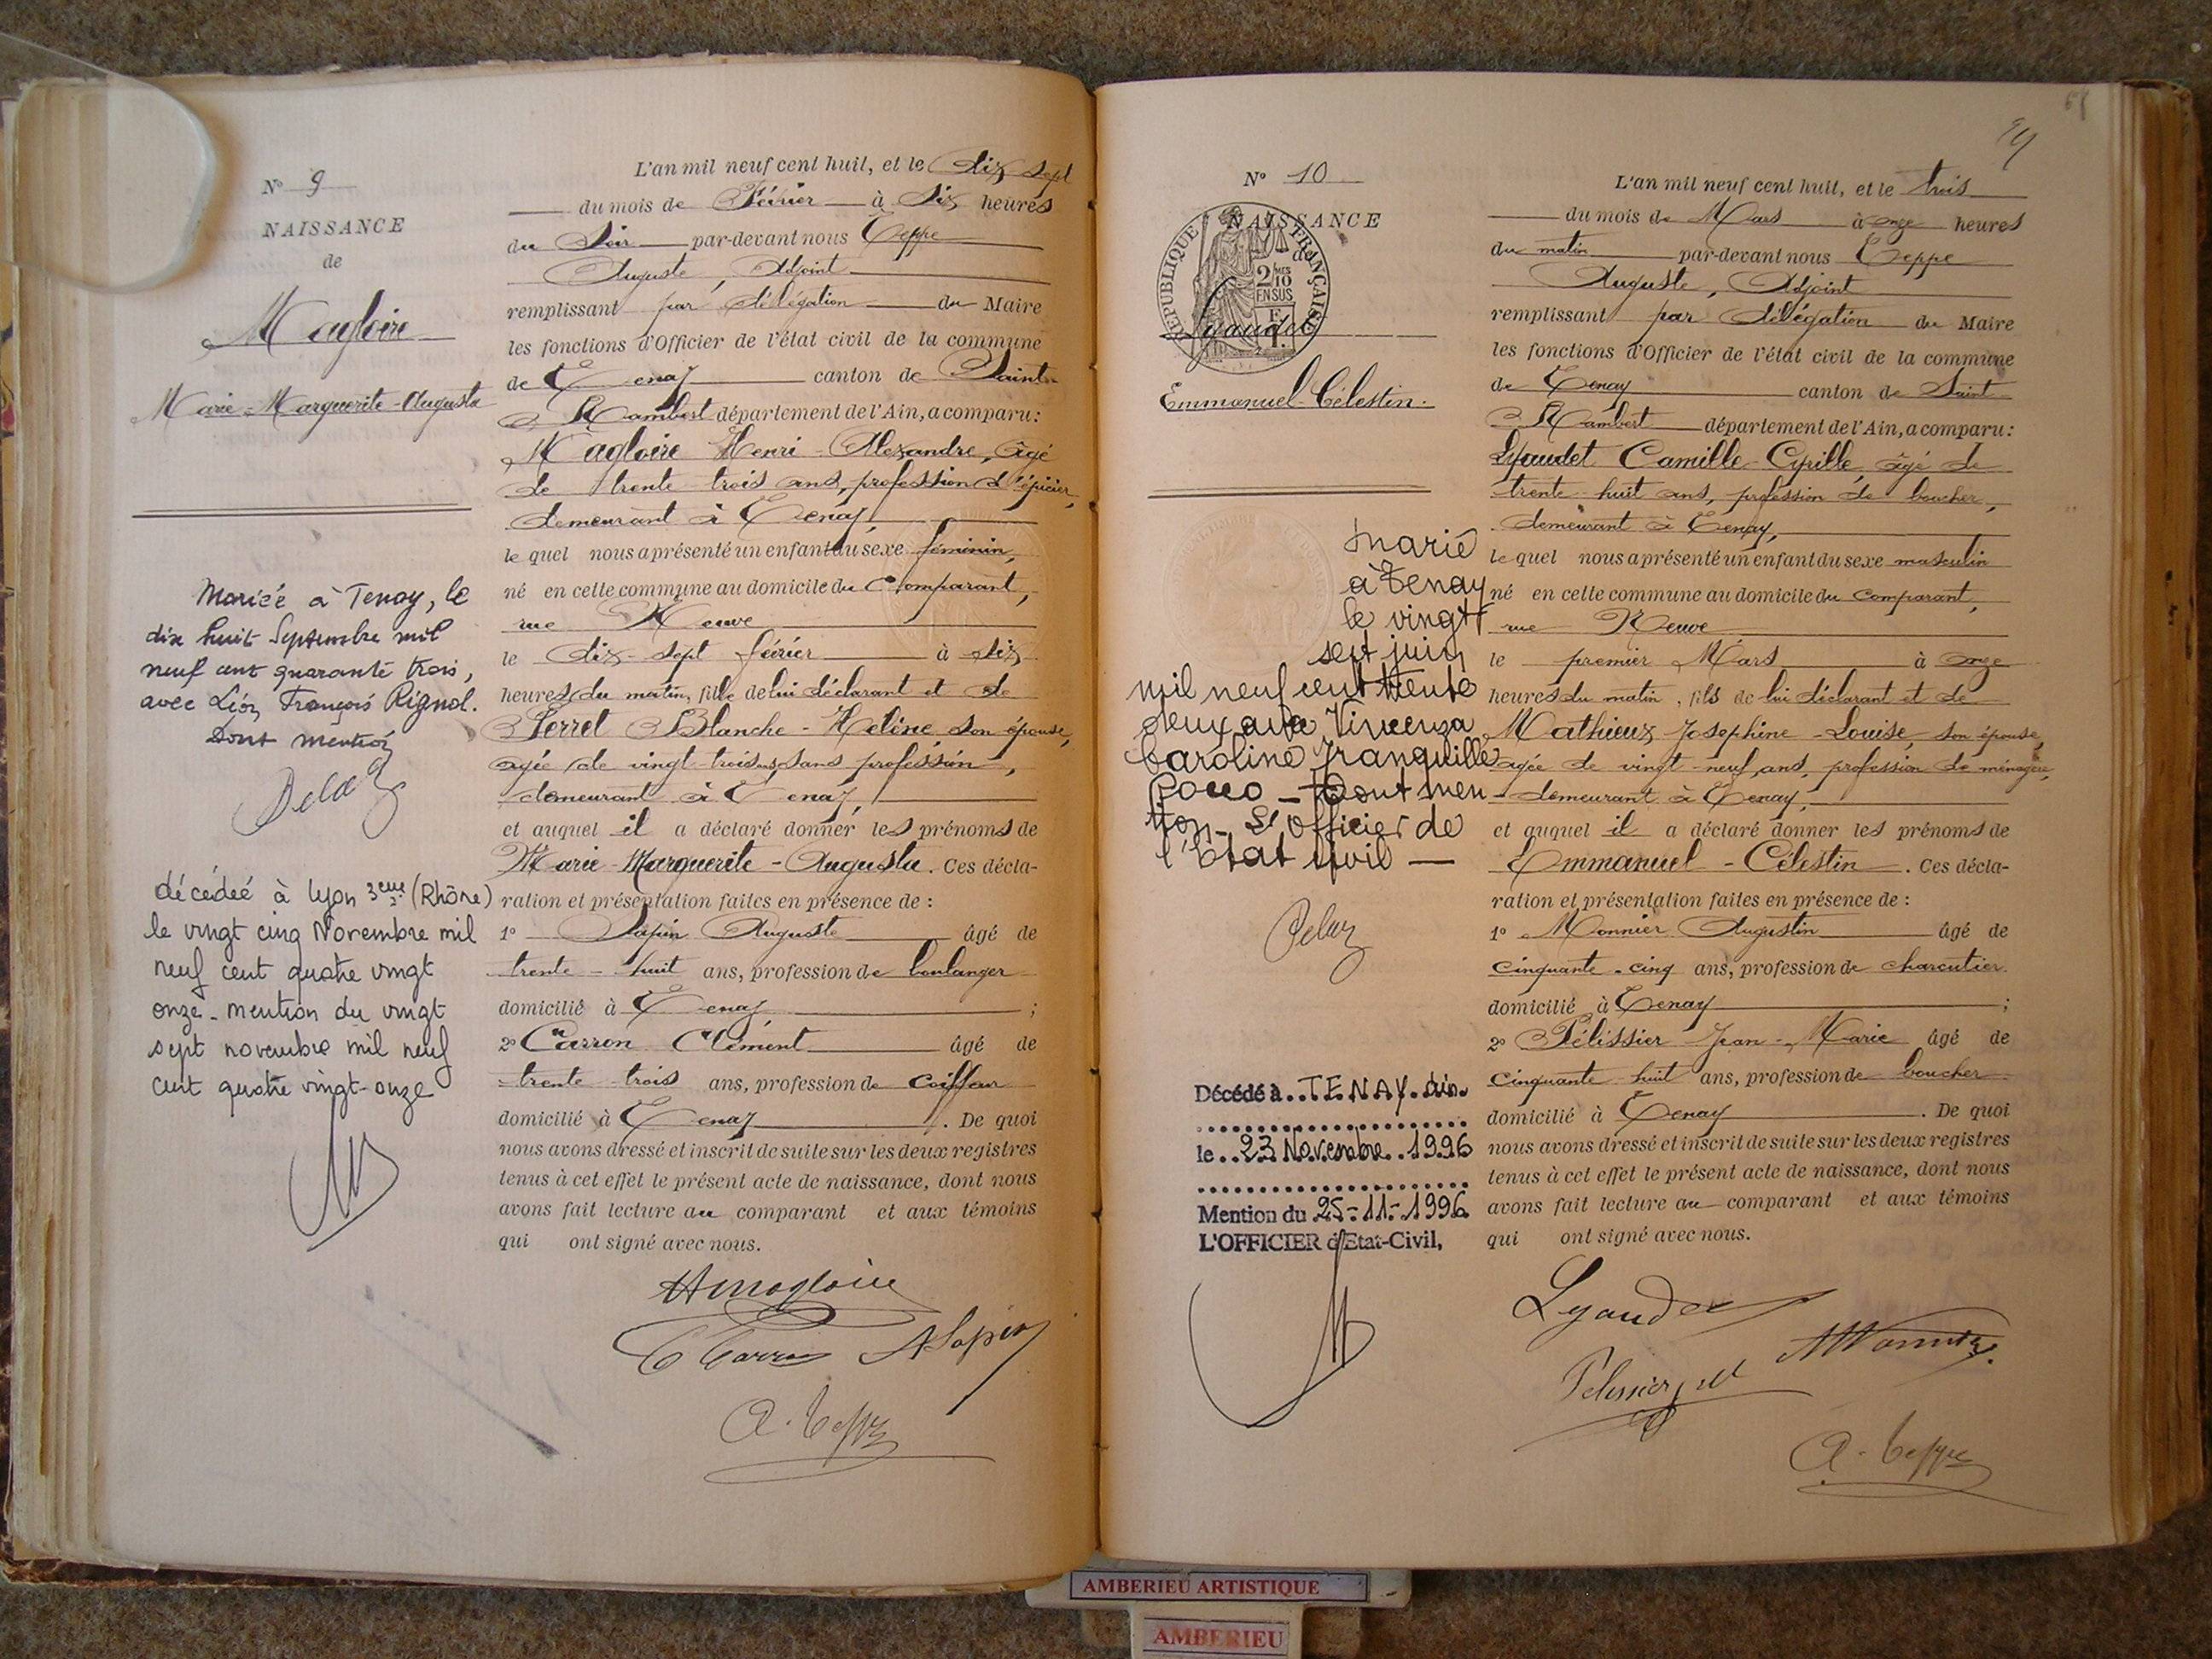 Nº 9
NAISSANCE
de
Magloire
Marie-Marguerite-Augusta
Mariée à Tenay, le
dix huit Septembre mil
neuf cent quarante trois,
avec Léon François Rignol.
Dont mention
décédée à Lyon 3eme (Rhône)
le vingt cinq Novembre mil
neuf cent quatre vingt
onze - mention du vingt
sept novembre mil neuf
cent quatre vingt-onze
L'an mil neuf cent huit, et le dix sept
du mois de Février à dix heures
du Soir par-devant nous Teppe
Auguste, Adjoint
remplissant par délégation du Maire
les fonctions d'Officier de l'état civil de la commune
de Tenay canton de Saint-
Rambert département de l'Ain, a comparu:
Magloire Henri-Alexandre, âgé
de trente trois ans, profession d'épicier,
demeurant à Tenay,
le quel nous a présenté un enfant du sexe féminin,
né en cette commune au domicile du Comparant,
rue Neuve
le dix-sept février à dix
heures du matin, fille de lui déclarant et de
Perret Blanche-Hélène, son épouse,
agée de vingt-trois ans, sans profession,
demeurant à Tenay,
et auquel il a déclaré donner les prénoms de
Marie-Marguerite-Augusta. Ces décla-
ration et présentation faites en présence de :
1º Sapin Auguste âgé de
trente-huit ans, profession de boulanger
domicilié à Tenay ;
2º Carron Clément âgé de
trente trois ans, profession de Coiffeur
domicilié à Tenay. De quoi
nous avons dressé et inscrit de suite sur les deux registres
tenus à cet effet le présent acte de naissance, dont nous
avons fait lecture au comparant et aux témoins
qui ont signé avec nous.
Hmagloire
C Carron ASapin
A. Teppe
59
Nº 10
NAISSANCE
de
RÉPUBLIQUE FRANÇAISE
2/10 MES
EN SUS
Lyaudet
Emmanuel-Célestin.
Marié
à Tenay
le vingt
sept juin
mil neuf cent trente
deux avec Vincenza
Caroline Tranquille
Rocco - Dont men
tion - L'Officier de
l'Etat Civil -
Décédé à..TENAY.Ain.
le..23.Novembre..1996
Mention du 25-11-1996
L'OFFICIER d'Etat-Civil,
L'an mil neuf cent huit, et le trois
du mois de Mars à onze heures
du matin par-devant nous Teppe
Auguste, Adjoint
remplissant par délégation du Maire
les fonctions d'Officier de l'état civil de la commune
de Tenay canton de Saint
Rambert département de l'Ain, a comparu:
Lyaudet Camille-Cyrille, âgé de
trente-huit ans, profession de boucher,
demeurant à Tenay,
le quel nous a présenté un enfant du sexe masculin
né en cette commune au domicile du Comparant,
rue Neuve
le premier Mars à onze
heures du matin, fils de lui déclarant et de
Mathieux Josephine-Louise, son épouse,
agée de vingt-neuf ans, profession de ménagère,
demeurant à Tenay,
et auquel il a déclaré donner les prénoms de
Emmanuel-Célestin. Ces décla-
ration et présentation faites en présence de :
1º Monnier Augustin âgé de
cinquante-cinq ans, profession de charcutier
domicilié à Tenay ;
2º Pélissier Jean-Marie âgé de
cinquante huit ans, profession de boucher
domicilié à Tenay. De quoi
nous avons dressé et inscrit de suite sur les deux registres
tenus à cet effet le présent acte de naissance, dont nous
avons fait lecture au comparant et aux témoins
qui ont signé avec nous.
Lyaudet
Pelissier
A. Teppe
AMBERIEU ARTISTIQUE
AMBERIEU